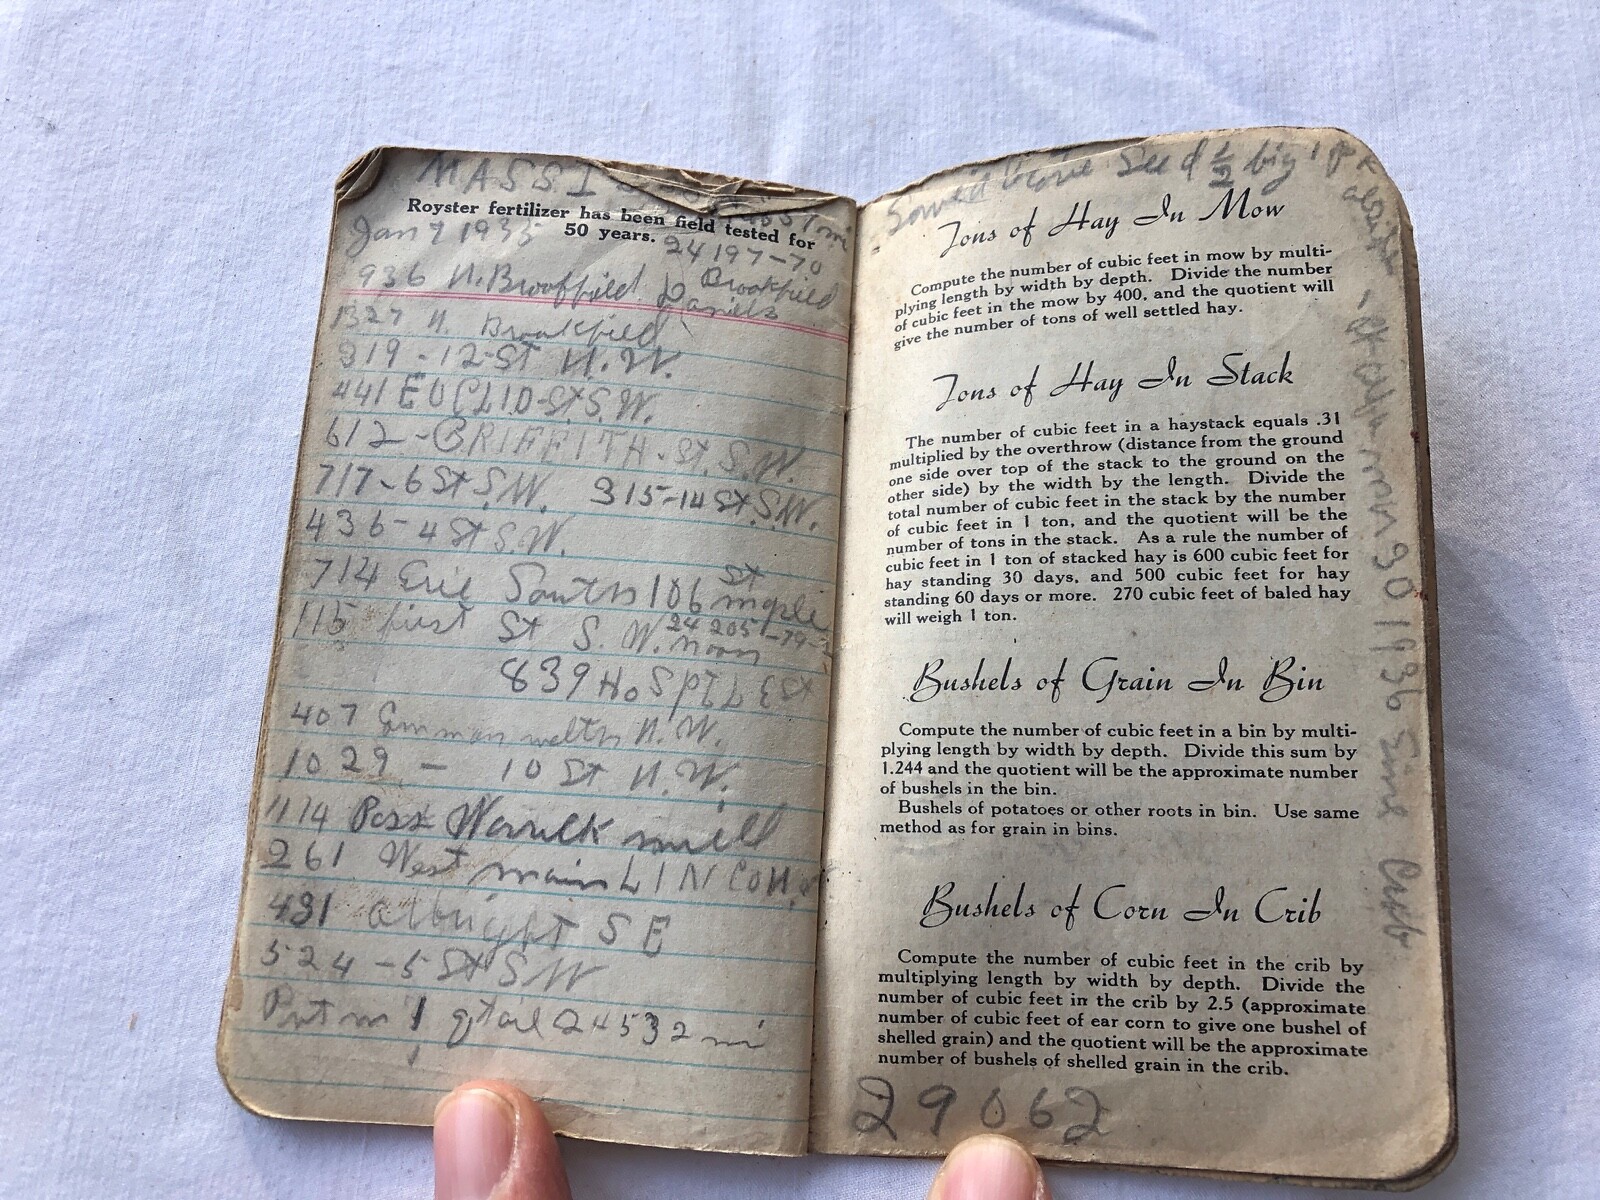 MASSI
Royster fertilizer has been field tested for
50 years.
Jan 7 1935
24197-70
936 N. Brooffield Brookfield
Daniels
1327 N. Brookfield
319-12-St N.W.
441 EUCLID-St S.W.
612-GRIFFITH-St. S.W.
717-6 St S.W. 315-14 St. S.W.
436-4 St S.W.
714 Erie South 106 St maple
115 first St S.W. 24205-79
noon
839
407 N.W.
1029 - 10 St N.W.
1174 Warrick mill
261 West main LINCOLN
431 albright S E
524-5 St S W
Put in 1 qt oil 24532 mi
Seed 1/2 big
Tons of Hay In Mow
Compute the number of cubic feet in mow by multi-
plying length by width by depth. Divide the number
of cubic feet in the mow by 400, and the quotient will
give the number of tons of well settled hay.
Tons of Hay In Stack
The number of cubic feet in a haystack equals .31
multiplied by the overthrow (distance from the ground
one side over top of the stack to the ground on the
other side) by the width by the length. Divide the
total number of cubic feet in the stack by the number
of cubic feet in 1 ton, and the quotient will be the
number of tons in the stack. As a rule the number of
cubic feet in 1 ton of stacked hay is 600 cubic feet for
hay standing 30 days, and 500 cubic feet for hay
standing 60 days or more. 270 cubic feet of baled hay
will weigh 1 ton.
Bushels of Grain In Bin
Compute the number of cubic feet in a bin by multi-
plying length by width by depth. Divide this sum by
1.244 and the quotient will be the approximate number
of bushels in the bin.
Bushels of potatoes or other roots in bin. Use same
method as for grain in bins.
Bushels of Corn In Crib
Compute the number of cubic feet in the crib by
multiplying length by width by depth. Divide the
number of cubic feet in the crib by 2.5 (approximate
number of cubic feet of ear corn to give one bushel of
shelled grain) and the quotient will be the approximate
number of bushels of shelled grain in the crib.
29062
30 1936